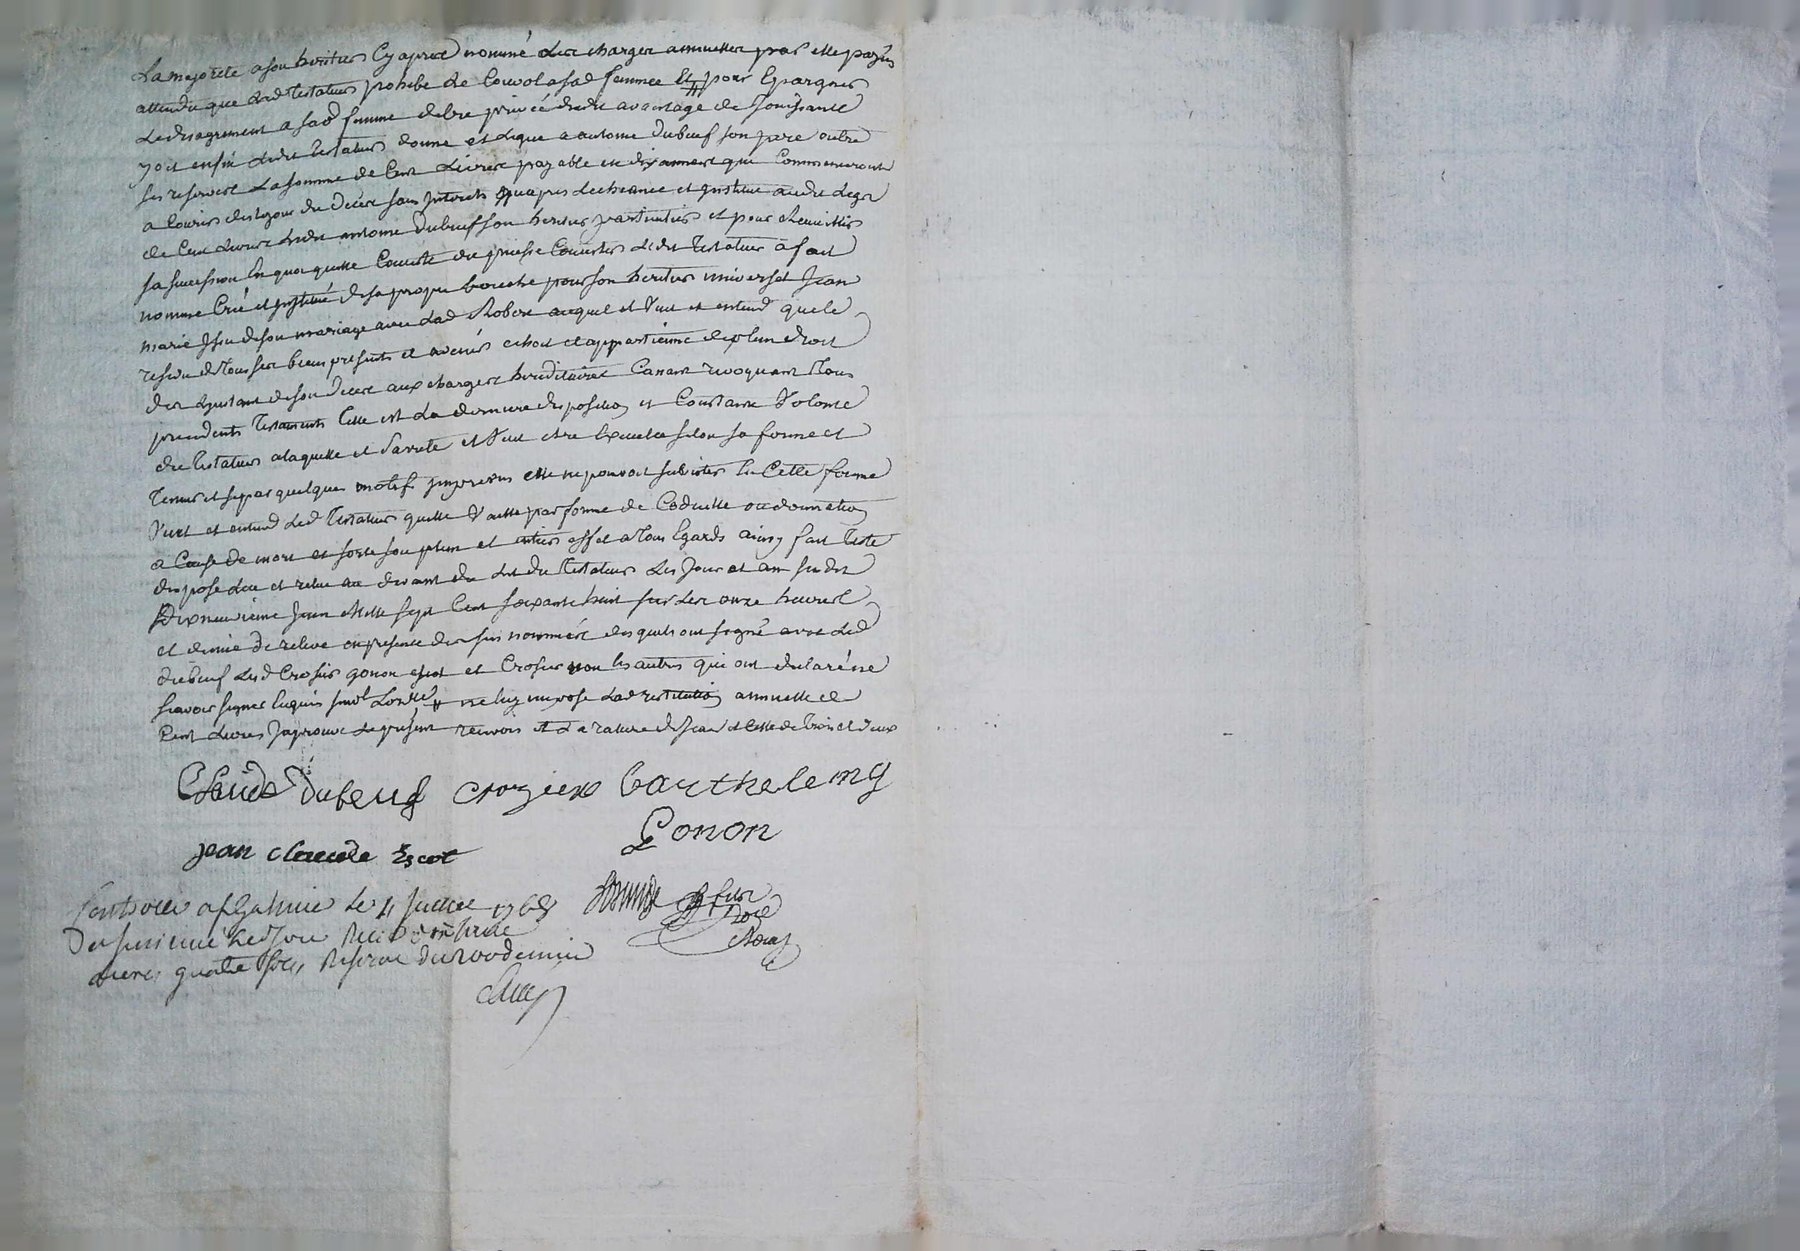 La majorité a son heritier Cy apres nommé les charges annuelles par elle payées
attendu que led testateur prohibe le convol a sad femme et pour Epargner
Le desagrement a sad femme detre privée dudit avantage de Jouissance
Led testateur donne et legue a antoine Dubeuf son pere outre
ses reserves La somme de Cent Livres payable en dix années qui Commenceront
a Courir du jour du Decés sans Interets quapres Lecheance et Institue audit Legs
de Cent Livres Ledit antoine Dubeuf son heritier particulier et pour Recueillir
sa succession En quoy quelle Consiste ou puisse Consister Ledit testateur a fait
nommé Créé et Institué de sa propre bouche pour son heritier universel Jean
marie Issu de son mariage avec Lad Robert auquel il Veut et entend que le
residu de tous ses biens presents et avenirs echoit et appartienne de plein droit
des Linstant de son Decés aux charges hereditaires Cassant revoquant tous
precedents testaments Celle est La derniere disposition et Constante Volonté
du testateur a laquelle il Sarrete et Veut etre Executée selon sa forme et
teneur et si par quelques motifs imprevus elle ne pouvoit subsister En Cette forme
Veut et entend Led testateur quelle Vaille par forme de Codicille ou donnation
a Cause de mort et sorte son plein et entier effet a tous Egards ainsy fait testé
disposé Lu et relu au devant du Lit du testateur Les Jour et an susdit
Dixneuvieme Juin Mille sept Cent soixante huit sur Les onze heures
et demie de releve en presence des sus nommés lesquels ont signé avec Led
dubeuf Led Crosier gonon escot et Crosier non les autres qui ont declaré ne
scavoir signer Enquis ne luy impose Lad restitution annuelle de
Cent Livres Japrouve Le présent renvois et La rature
Claude Dubeuf crozier barthelemy
Gonon
jean claude Escot
Controllé a st Galmier Le Juillet 1768
quatre sols